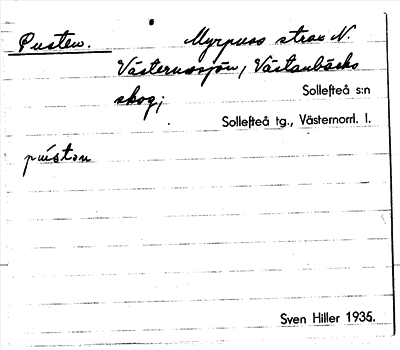 Pusten. Myrpuss strax N.
Västernässjön, Västanbäcks
skog;
Sollefteå s:n
Sollefteå tg., Västernorrl. l.
pústən
Sven Hiller 1935.